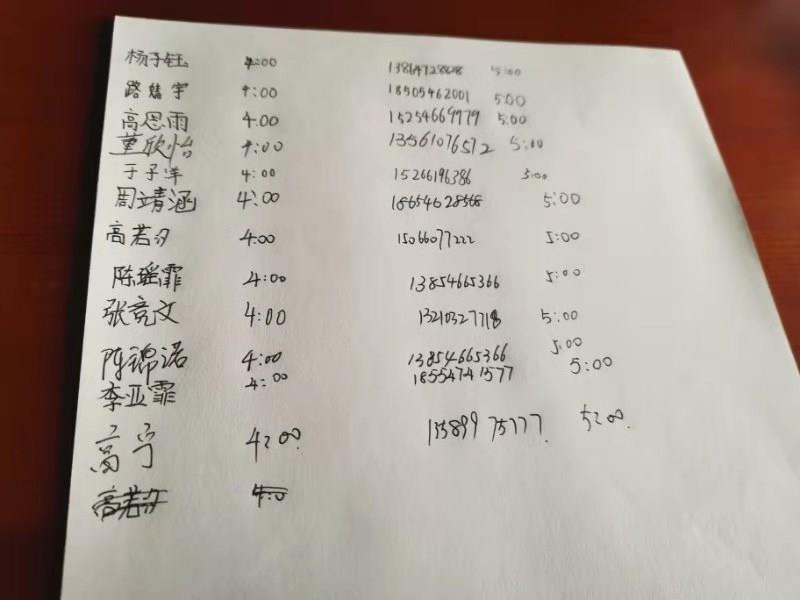 杨子钰 4:00 5:00
路婧宇 4:00 18505462001 5:00
高思雨 4.00 15254669979 5.00
董欣怡 4:00 13561076572 5:00
于子洋 4:00 15266196386 5:00
周靖涵 4:00 18654628568 5:00
高若汐 4:00 15066077222 5:00
陈瑶霏 4:00 13854665366 5:00
张竞文 4:00 13210327718 5:00
陈锦诺 4:00 13854665366 5:00
李亚霏 4:00 18554741577 5:00
高宁 4:00. 15589975777. 5:00.
高若汐 4:0